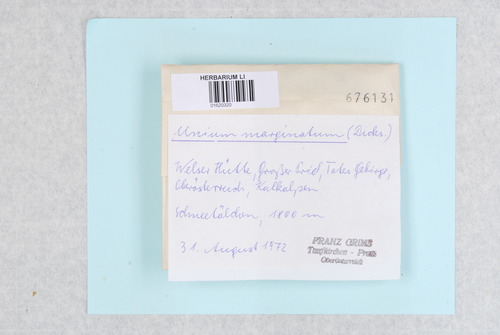 HERBARIUM LI
01620320
676131
Mnium marginatum (Dicks.)
Welser Hütte, Großer Priel, Totes Gebirge,
Oberösterreich, Kalkalpen
Schneetälchen, 1800 m
31. August 1972
FRANZ GRIMS
Taufkirchen - Pram
Oberösterreich